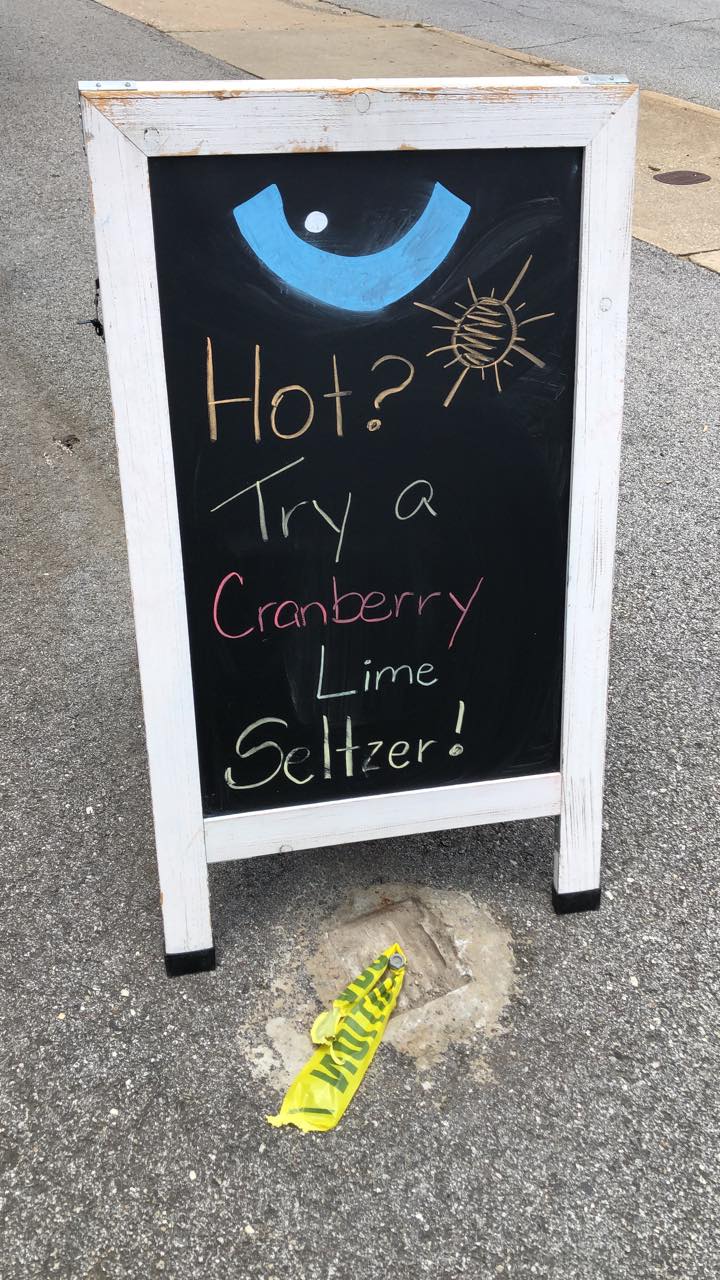 Hot?
Try a
Cranberry
Lime
Seltzer!